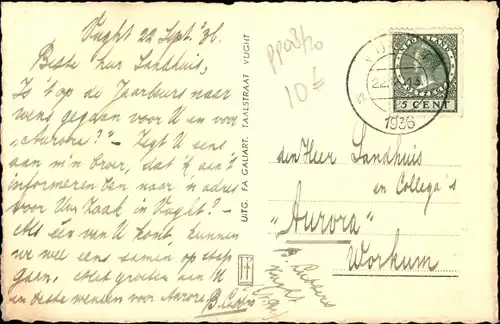 Vught 22 Sept. '36.
Beste heer Landhuis,
Is 't op de Jaarbeurs naar
wens gegaan voor U en voor
"Aurora"? - Zegt U eens
aan m'n broer, dat ik aan 't
informeren ben naar 'n adres
voor Uw zaak in Vught? -
Als een van U komt kunnen
we wel eens samen op stap
gaan. Met groeten aan U
en beste wensen voor Aurora
UITG. FA GALIART. TAALSTRAAT VUGHT
10
5 CENT
1936
den Heer Landhuis
en Collega's
"Aurora"
Workum
B.
Vught